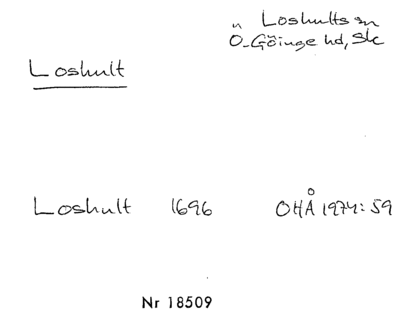 Loshults sn
Ö. Göinge hd, Sk
Loshult
Loshult 1696 OHÅ 1974:59
Nr 18509